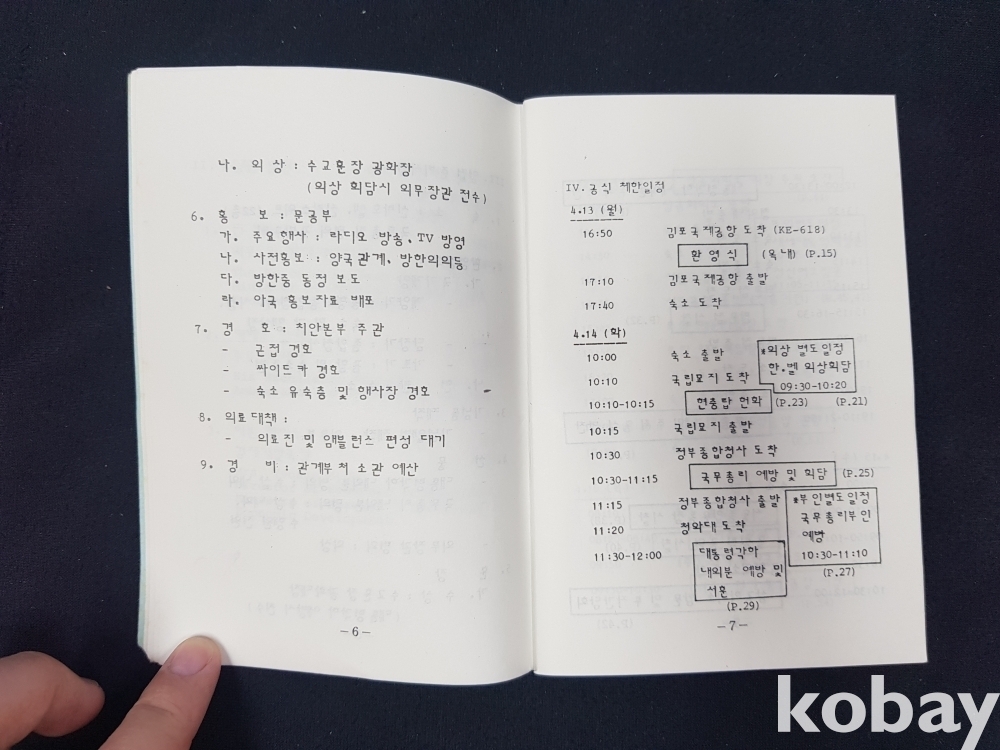 나. 의 상 : 수교훈장 광화장
(외상 회담시 외무장관 전수)
6. 홍 보 : 문공부
가. 주요행사 : 라디오 방송, TV 방영
나. 사전홍보 : 양국관계, 방한의의등
다. 방한중 동정 보도
라. 아국 홍보자료 배포
7. 경 호 : 치안본부 주관
- 근접 경호
- 싸이드카 경호
- 숙소 유숙층 및 행사장 경호
8. 의료대책 :
- 의료진 및 앰블런스 편성 대기
9. 경 비 : 관계부처 소관 예산
-6-
IV. 공식 제한일정
4.13 (월)
16:50 김포국제공항 도착 (KE-618)
환영식 (옥내) (P.15)
17:10 김포국제공항 출발
17:40 숙소 도착
4.14 (화)
10:00 숙소 출발
10:10 국립묘지 도착
*외상 별도일정
한.벨 외상회담
09:30-10:20
(P.21)
10:10-10:15 현충탑 헌화 (P.23)
10:15 국립묘지 출발
10:30 정부종합청사 도착
10:30-11:15 국무총리 예방 및 회담 (P.25)
11:15 정부종합청사 출발
11:20 청와대 도착
*부인별도일정
국무총리부인
예방
10:30-11:10
(P.27)
11:30-12:00 대통령각하
내외분 예방 및
서훈
(P.29)
-7-
kobay